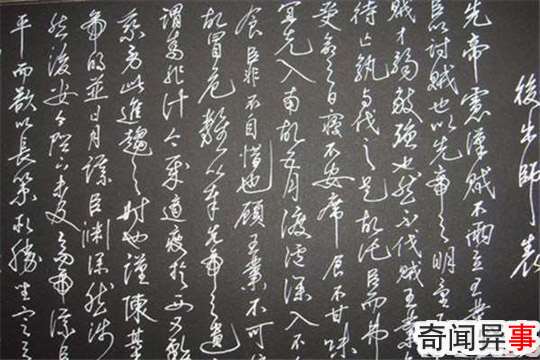 後出師表
先帝慮漢賊不兩立王業
臣以討賊也以先帝之明量
賊才弱敵強也然不伐賊王業
待亡孰與伐之是故託臣而弗
受命之日寢不安席食不甘味
宜先入南故五月渡瀘深入不
食臣非不自惜也顧王業不可
故冒危難以奉先帝之遺
謂為非計今賊適疲於西又務
乘勞此進趨之時也謹陳其
帝明並日月謀臣淵深然涉
然後安今陛下未及高帝謀臣
平而欲以長策取勝坐定天
奇闻异事